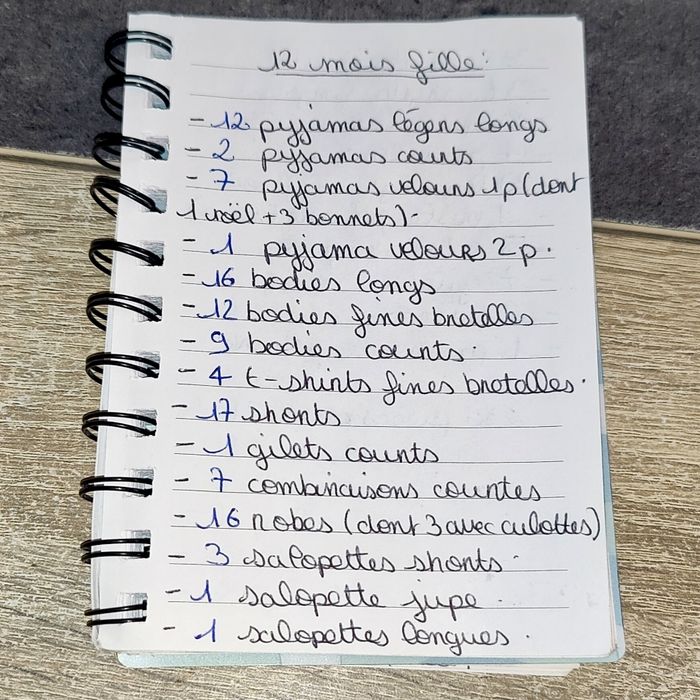 12 mois fille :
- 12 pyjamas légers longs
- 2 pyjamas courts
- 7 pyjamas velours 1p (dont
1 noël + 3 bonnets).
- 1 pyjama velours 2p.
- 16 bodies longs
- 12 bodies fines bretelles
- 9 bodies courts.
- 4 t-shirts fines bretelles.
- 17 shorts
- 1 gilets courts
- 7 combinaisons courtes
- 16 robes (dont 3 avec culottes)
- 3 salopettes shorts.
- 1 salopette jupe.
- 1 salopettes longues.